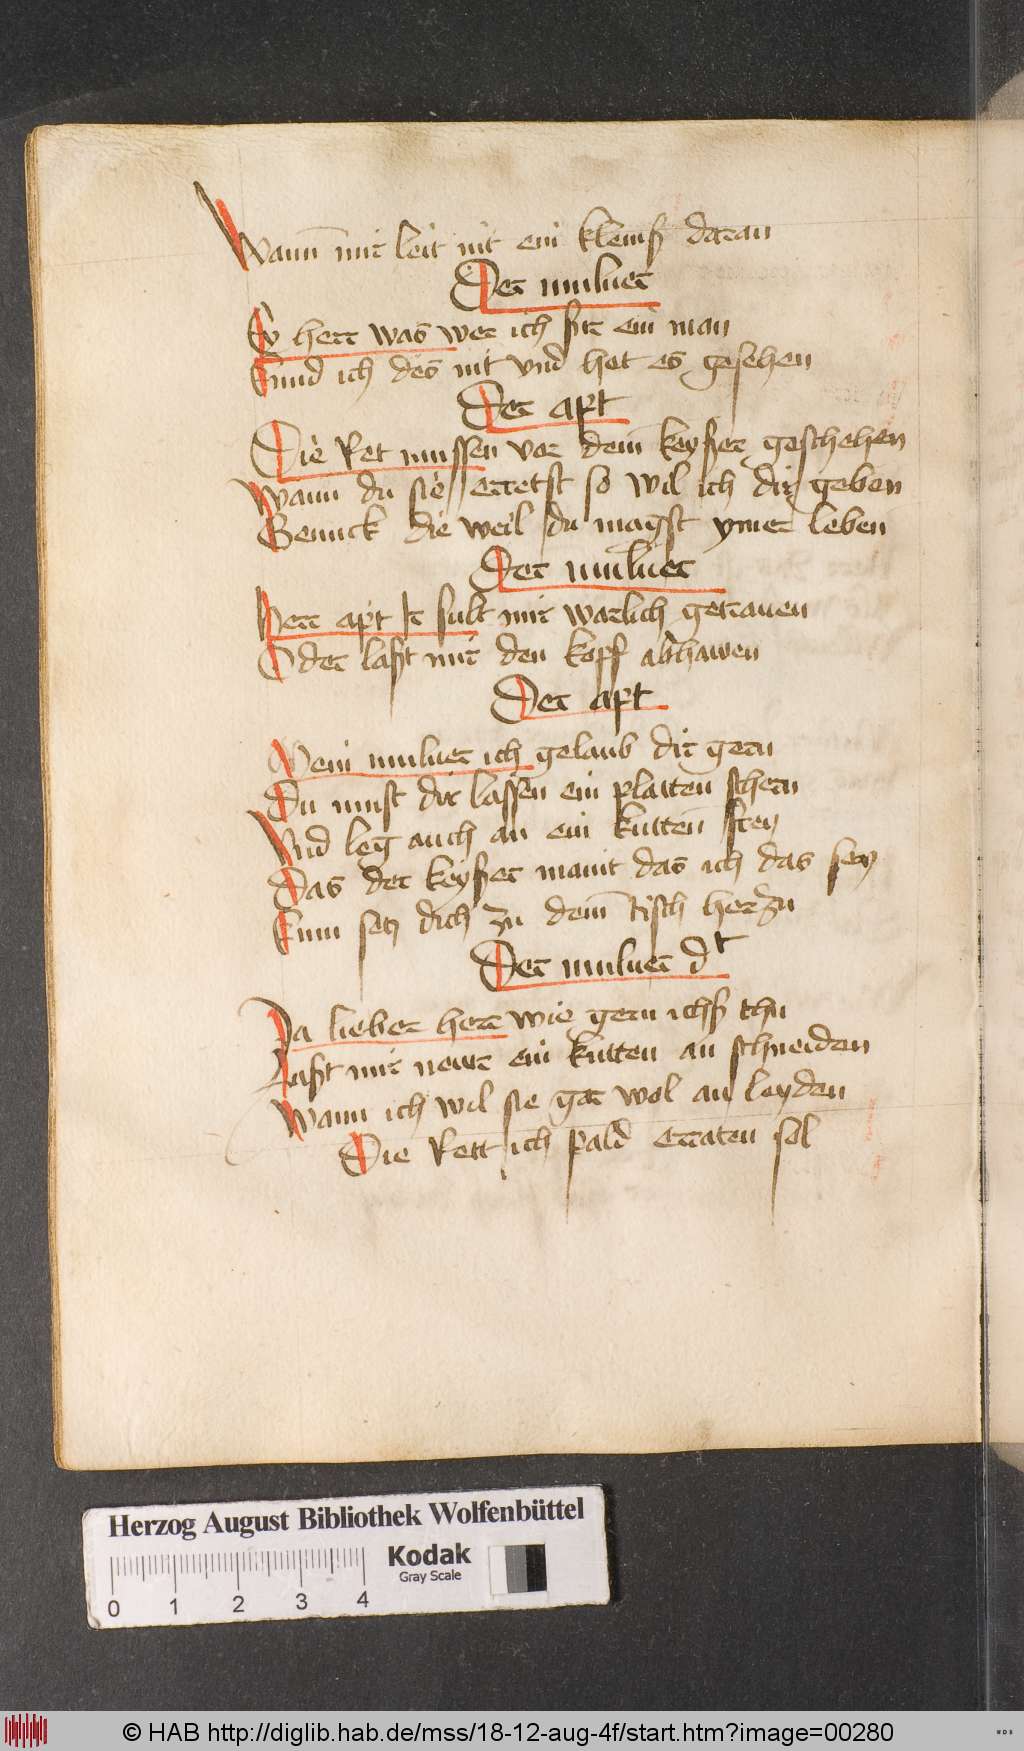 Wann mir leit nit ein kleinß daran
Der mulner
Ey herr was wer ich fur ein man
Kund ich des nit vnd het es gesehen
Der apt
Die Ret mussen vor dem keyser geschehen
Wann du sie erretst so wil ich dir geben
Genuck die weil du magst ymer leben
Der mulner
Herr apt Ir sult mir warlich getrauen
Oder laßt mir den kopf abhawen
Der apt
Mein mulner ich gelaub dir gern
Du must dir lassen ein platten schern
Vnd leg auch an ein kutten frey
Das der keyser maint das ich das sey
Kum setz dich zu dem tisch herzu
Der mulner dt
Ja lieber herr wie gern ichß thu
Laßt mir newr ein kutten an schneiden
Wann ich wil sie gar wol an leyden
Die Rett ich pald erraten sol
Herzog August Bibliothek Wolfenbüttel
Kodak
Gray Scale
0 1 2 3 4
© HAB http://diglib.hab.de/mss/18-12-aug-4f/start.htm?image=00280
WDB